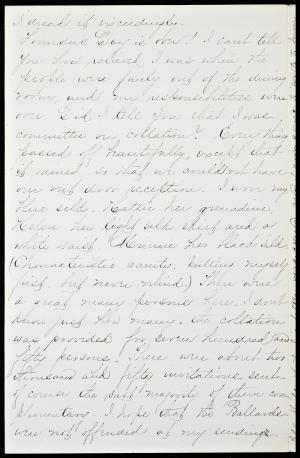 I dread it exceedingly.
Founders' Day is over! I can't tell
you how relieved I was when the
people were fairly out of the dining
room, and my responsibilities were
over. Did I tell you that I was
committee on collation? Every thing
passed off beautifully, except that
it rained, so that we couldn't have
our out door reception. I wore my
blue silk, Hattie her grenadine,
Helen her light silk skirt and a
white waist, Minnie her black silk.
(Characteristic vanity, putting myself
first, but never mind.) There were
a great many persons here, I don't
know just how many, the collation
was provided for seven hundred and
fifty persons. There were about two
thousand and fifty invitations sent,
of course the vast majority of them com-
plimentary. I hope that the Ballards
were not offended at my sending